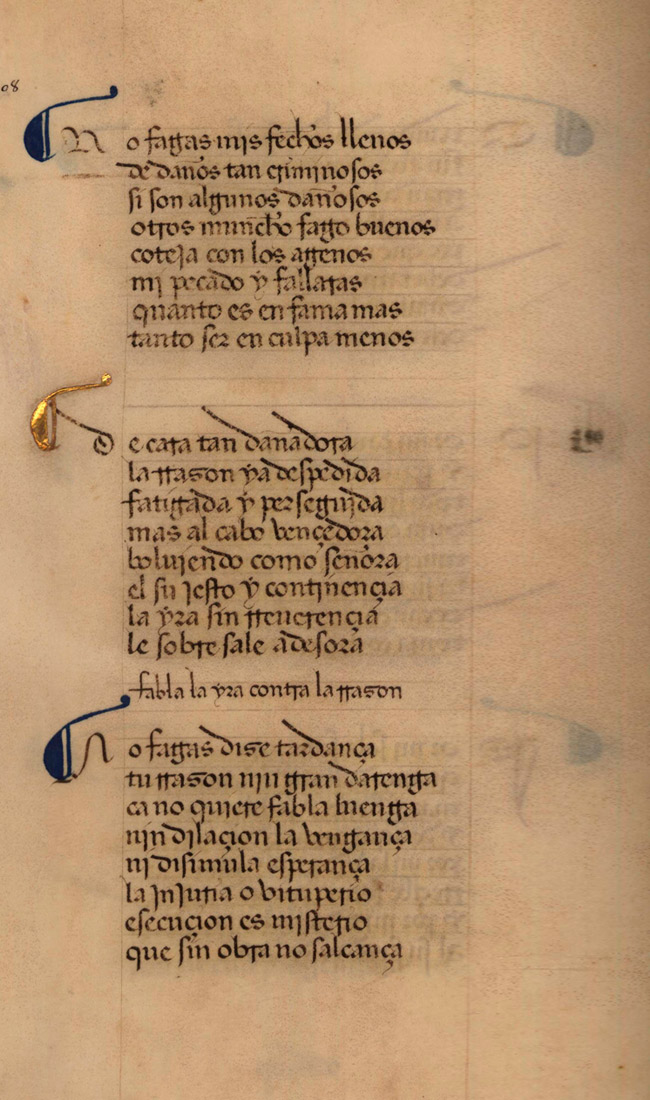 08
No fagas mis fechos llenos
de daños tan criminosos
si son algunos dañosos
otros muncho fago buenos
coteja con los agenos
mi pecado y fallaras
quanto es en fama mas
tanto ser en culpa menos
De cara tan dañadora
la rrason ya despedida
fatigada y perseguida
mas al cabo vençedora
boluiendo como señora
el su jesto y continençia
la yra sin rreuerençia
le sobre sale adesora
fabla la yra contra la rrason
No fagas dise tardança
tu rrason nin gran darenga
ca no quiere fabla luenga
nin dilaçion la vengança
ni disimula esperança
la Injuria o vituperio
esecuçion es misterio
que sin obra no salcança